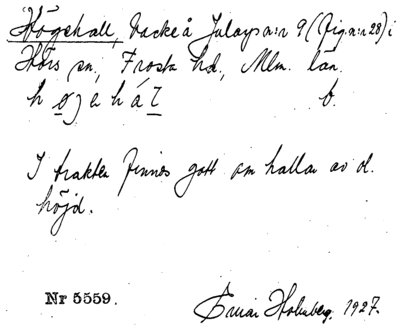 Högehall, backe å Julaps n:r 9 (Fig. n:r 28) i
Hörs sn, Frosta hd, Mlm. län.
h ø j e h á l b.
I trakten finnes gott om hallar av ol.
höjd.
Nr 5559. Einar Holmberg. 1927.